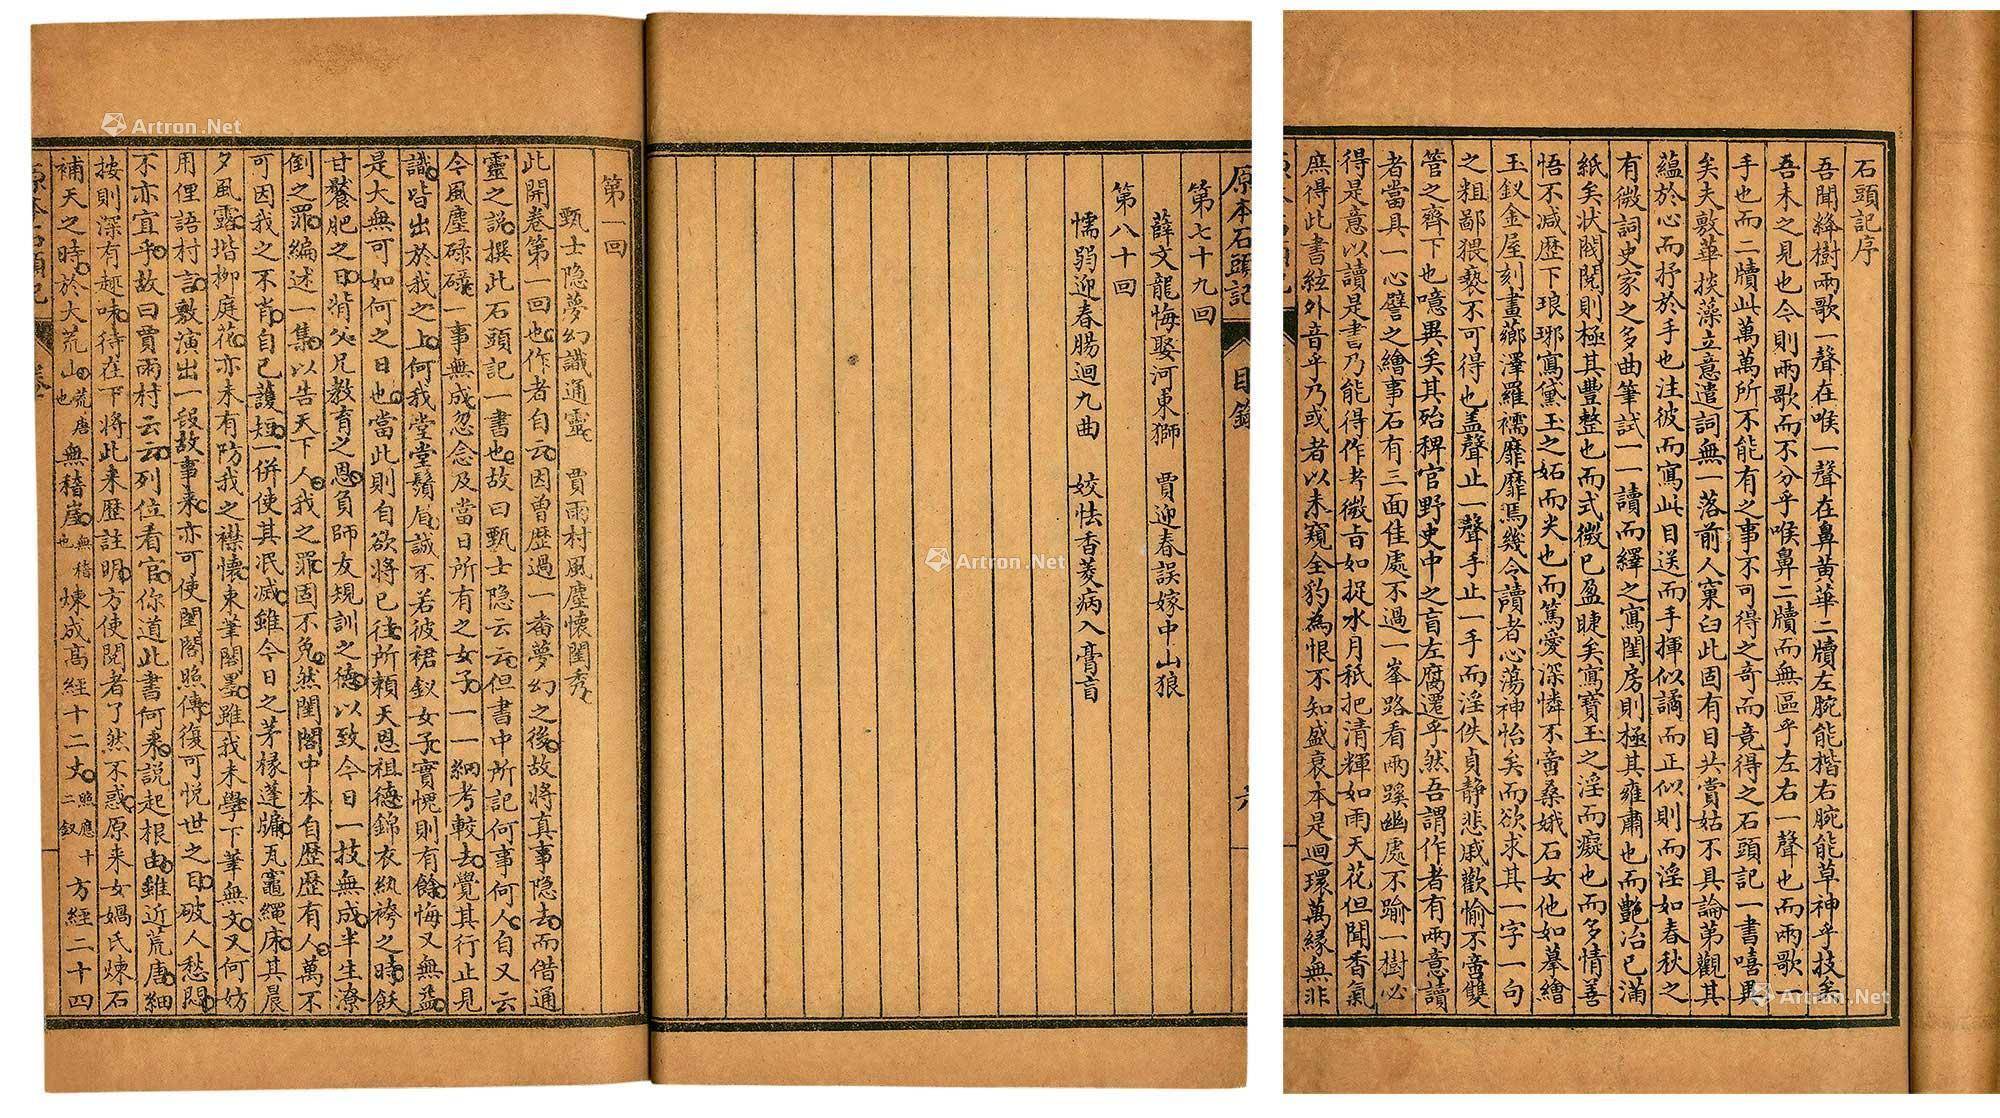 石頭記序
吾聞絳樹兩歌一聲在喉一聲在鼻黃華二牘左腕能楷右腕能草神乎技矣
吾未之見也今則兩歌而不分乎喉鼻二牘而無區乎左右一聲也而兩歌一
手也而二牘此萬萬所不能有之事不可得之奇而竟得之石頭記一書嘻異
矣夫敷華掞藻立意遣詞無一落前人窠臼此固有目共賞姑不具論第觀其
蘊於心而抒於手也注彼而寫此目送而手揮似譎而正似則而淫如春秋之
有微詞史家之多曲筆試一一讀而繹之寫閨房則極其雍肅也而艷冶已滿
紙矣狀閥閱則極其豐整也而式微已盈睫矣寫寶玉之淫而癡也而多情善
悟不減歷下琅琊寫黛玉之妬而尖也而篤愛深憐不啻桑娥石女他如摹繪
玉釵金屋刻畫薌澤羅襦靡靡焉幾令讀者心蕩神怡矣而欲求其一字一句
之粗鄙猥褻不可得也盖聲止一聲手止一手而淫佚貞靜悲戚歡愉不啻雙
管之齊下也噫異矣其殆稗官野史中之盲左腐遷乎然吾謂作者有兩意讀
者當具一心譬之繪事石有三面佳處不過一峯路看兩蹊幽處不踰一樹必
得是意以讀是書乃能得作者微旨如捉水月秖把清輝如雨天花但聞香氣
庶得此書絃外音乎乃或者以未窺全豹為恨不知盛衰本是迴環萬緣無非
原本石頭記 目錄
第七十九回
薛文龍悔娶河東獅 賈迎春誤嫁中山狼
第八十回
懦弱迎春腸迴九曲 姣怯香菱病入膏肓
第一回
甄士隱夢幻識通靈 賈雨村風塵懷閨秀
此開卷第一回也作者自云因曾歷過一番夢幻之後故將真事隱去而借通
靈之說撰此石頭記一書也故曰甄士隱云云但書中所記何事何人自又云
今風塵碌碌一事無成忽念及當日所有之女子一一細考較去覺其行止見
識皆出於我之上何我堂堂鬚眉誠不若彼裙釵女子實愧則有餘悔又無益
是大無可如何之日也當此則自欲將已往所賴天恩祖德錦衣紈袴之時飫
甘饜肥之日背父兄教育之恩負師友規訓之德以致今日一技無成半生潦
倒之罪編述一集以告天下人我之罪固不免然閨閣中本自歷歷有人萬不
可因我之不肖自己護短一併使其泯滅雖今日之茅椽蓬牖瓦竈繩床其晨
夕風露堦柳庭花亦未有防我之襟懷束筆閣墨雖我未學下筆無文又何妨
用俚語村言敷演出一段故事來亦可使閨閣照傳復可悅世之目破人愁悶
不亦宜乎故曰賈雨村云云列位看官你道此書何來說起根由雖近荒唐細
按則深有趣味待在下將此來歷註明方使閱者了然不惑原來女媧氏煉石
補天之時於大荒山荒唐也無稽崖無稽也煉成高經十二丈照應十二釵方經二十四
Artron.Net
Artron.Net
Artron.Net